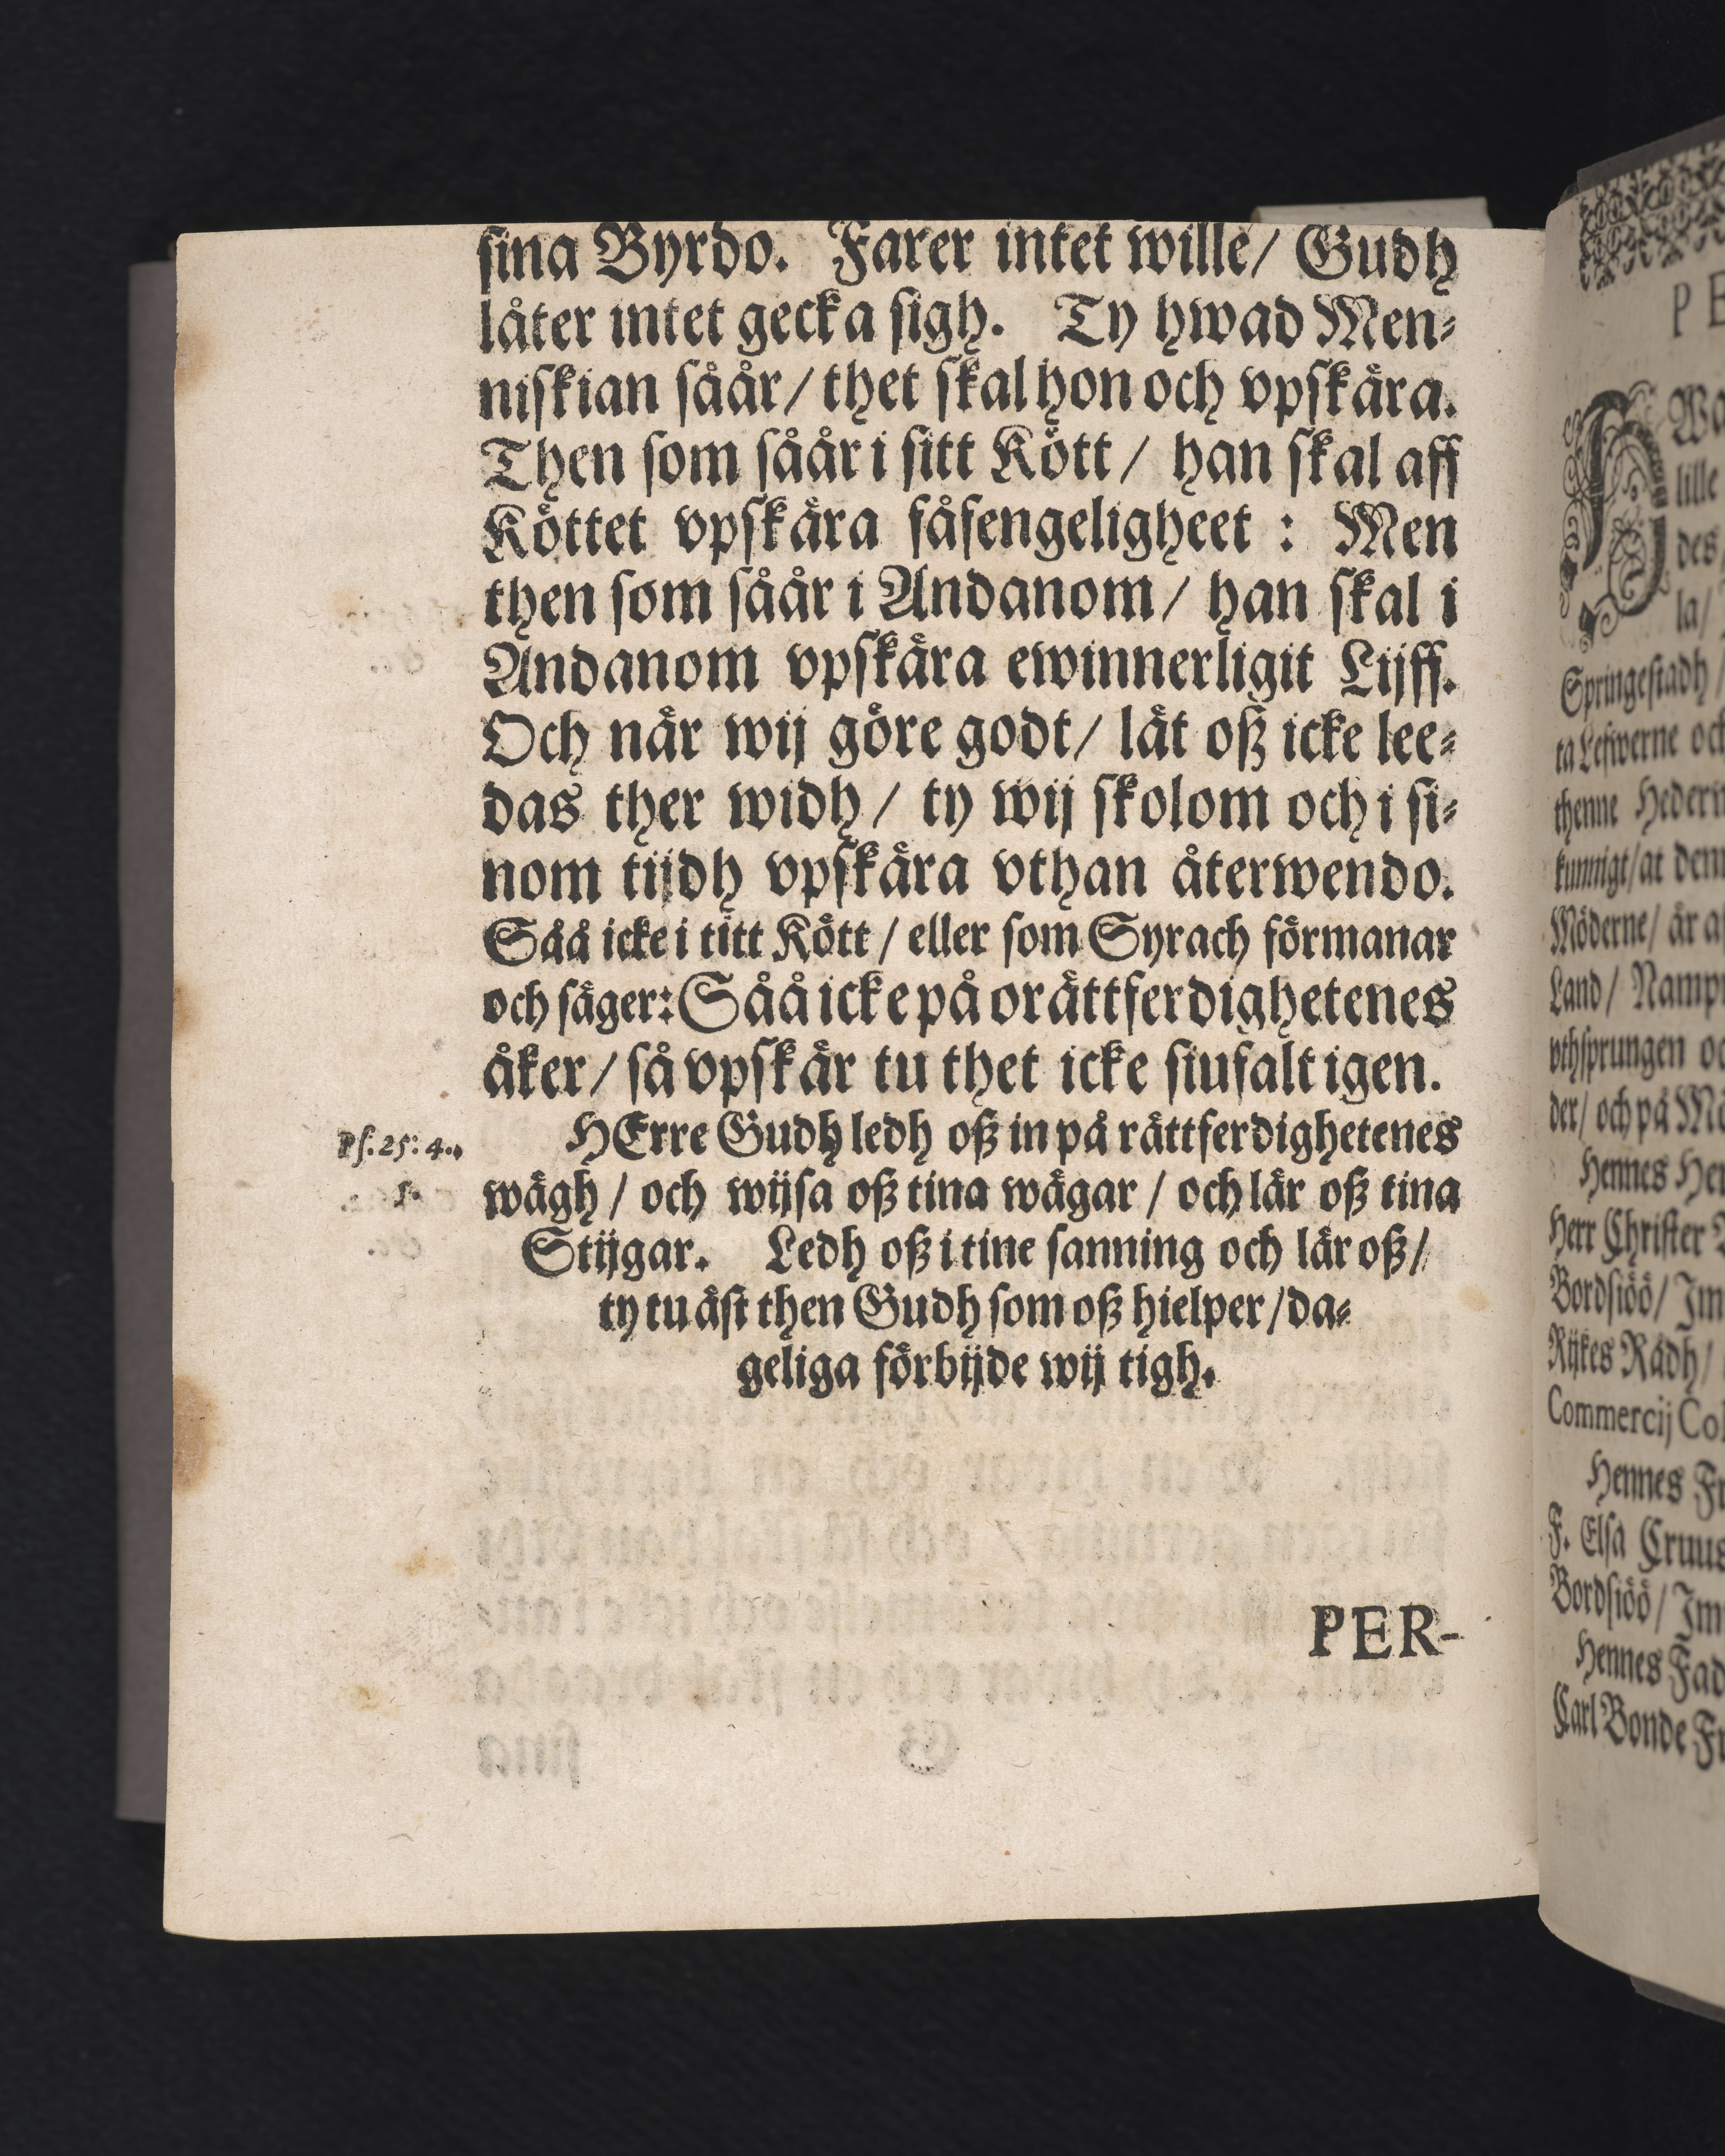 sina Byrdo. Farer intet wille/ Gudh
låter intet gecka sigh. Ty hwad Men-
niskian såår/ thet skal hon och vpskära.
Then som såår i sitt Kött/ han skal aff
Köttet vpskära fåfengeligheet : Men
then som såår i Andanom/ han skal i
Andanom vpskära ewinnerligit Lijff.
Och när wij göre godt/ lät oß icke lee-
das ther widh/ ty wij skolom och i si-
nom tijdh vpskära vthan återwendo.
Såå icke i titt Kött/ eller som Syrach förmanar
och säger: Såå icke på orättferdighetenes
åker/ så vpskär tu thet icke siufalt igen.
HErre Gudh ledh oß in på rättferdighetenes
Ps. 25: 4.,
wägh/ och wijsa oß tina wägar/ och lär oß tina
5.
Stijgar. Ledh oß i tine sanning och lär oß/
ty tu äst then Gudh som oß hielper/ da-
geliga förbijde wij tigh.
PER-
PE
lille
des
la/
Springestadh/
ta Lefwerne och
thenne
kunnigt/ at
Möderne/ är
Land/
vthsprungen
der/ och på
Hennes
Herr Christer
Bordsiöö/
Rijkes Rådh/
Commercij
Hennes
F. Elsa
Bordsiöö/
Hennes
Carl Bonde